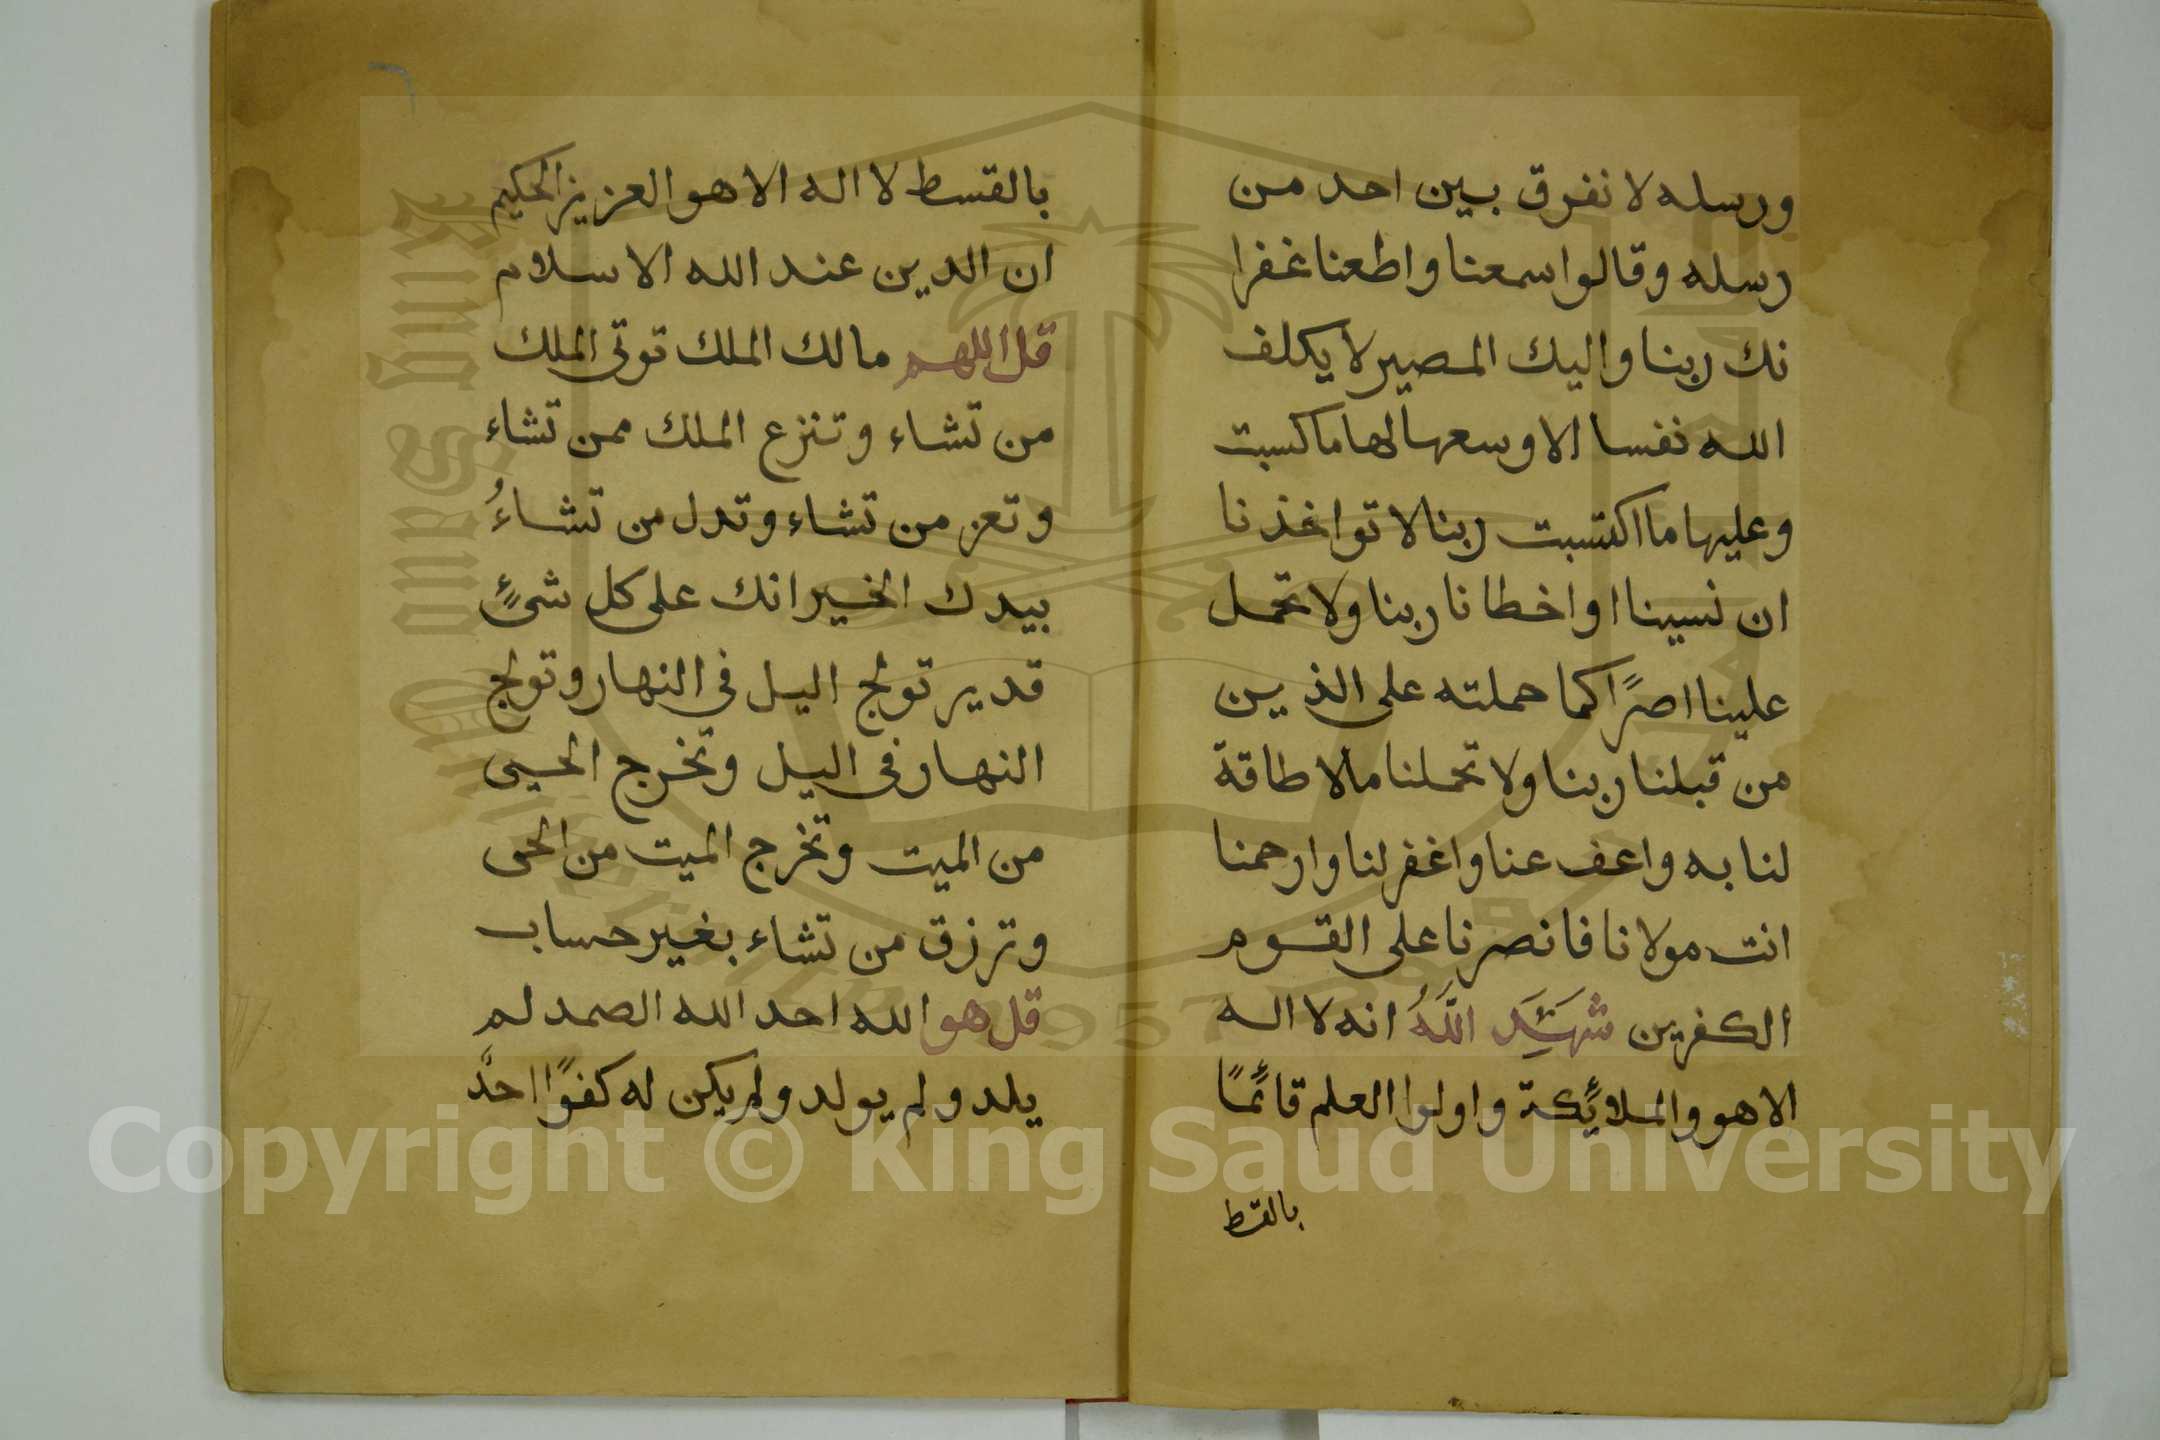 ورسله لا نفرق بين احد من
رسله وقالوا سمعنا واطعنا غفرا
نك ربنا واليك المصير لا يكلف
الله نفسا الا وسعها لها ما كسبت
وعليها ما اكتسبت ربنا لا تواخذنا
ان نسينا او اخطانا ربنا ولا تحمل
علينا اصرًا كما حملته على الذين
من قبلنا ربنا ولا تحملنا مالا طاقة
لنا به واعف عنا واغفر لنا وارحمنا
انت مولانا فانصرنا على القوم
الكفرين شَهِدَ اللَّهُ انه لا اله
الا هو والملائكة واولوا العلم قائمًا
بالقسط
بالقسط لا اله الا هو العزيز الحكيم
ان الدين عند الله الاسلام
قل اللهم مالك الملك توتى الملك
من تشاء وتنزع الملك ممن تشاء
وتعز من تشاء وتدل من تشاءُ
بيدك الخير انك على كل شئٍ
قدير تولج اليل فى النهار وتولج
النهار فى اليل وتخرج الحيى
من الميت وتخرج الميت من الحى
وترزق من تشاء بغير حساب
قل هو الله احد الله الصمد لم
يلد ولم يولد ولم يكن له كفوًا احدٌ
Copyright © King Saud University
King Saud University
1957